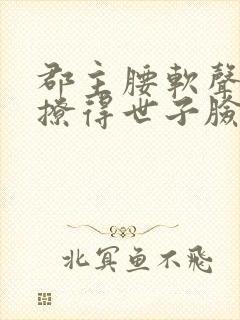 郡主腰軟聲
撩得世子臉
北冥鱼不飛